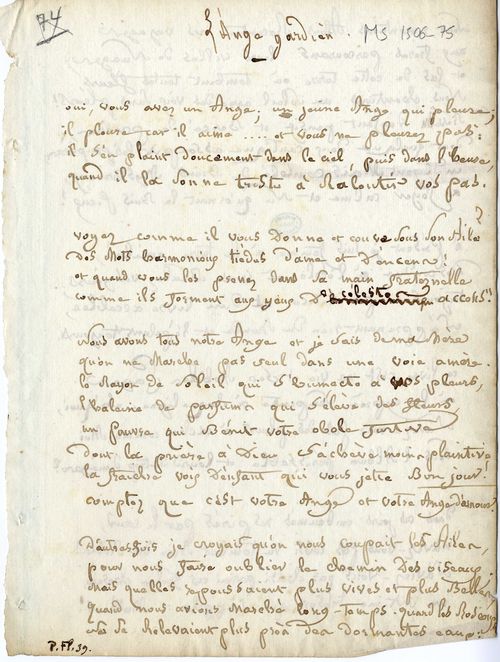 74
L'Ange gardien.
MS 1506-75
oui, vous avez un Ange, un jeune Ange qui pleure,
il pleure car il aime .... et vous ne pleurez pas:
il s'en plaint doucement dans le ciel, puis dans l'heure,
quand il la sonne triste à ralentir vos pas.
voyez comme il vous donne et couve sous son aile
des mots harmonieux tiedes d'ame et d'encens!
et quand vous les prenez dans sa main fraternelle
comme ils forment aux yeux de celestes accens!
Nous avons tous notre Ange et je sais de ma Mere
qu'on ne marche pas seul dans une voie amère.
le Rayon de soleil qui s'humecte à vos pleurs,
l'haleine de parfums qui s'élève des fleurs
un pauvre qui Bénit votre obole furtive
dont la prière à Dieu s'achève moins plaintive
la fraiche voix d'enfant qui vous jette Bonjour!
comptez que c'est votre Ange et votre Ange d'amour.
D'autres fois je croyais qu'on nous coupait les Ailes,
pour nous faire oublier le chemin des oiseaux
mais quelles repoussaient plus vives et plus Belles
quand nous avions Marché long-temps: quand les Roseaux
se relevaient plus près des dormantes eaux:
P. Fl. 39.